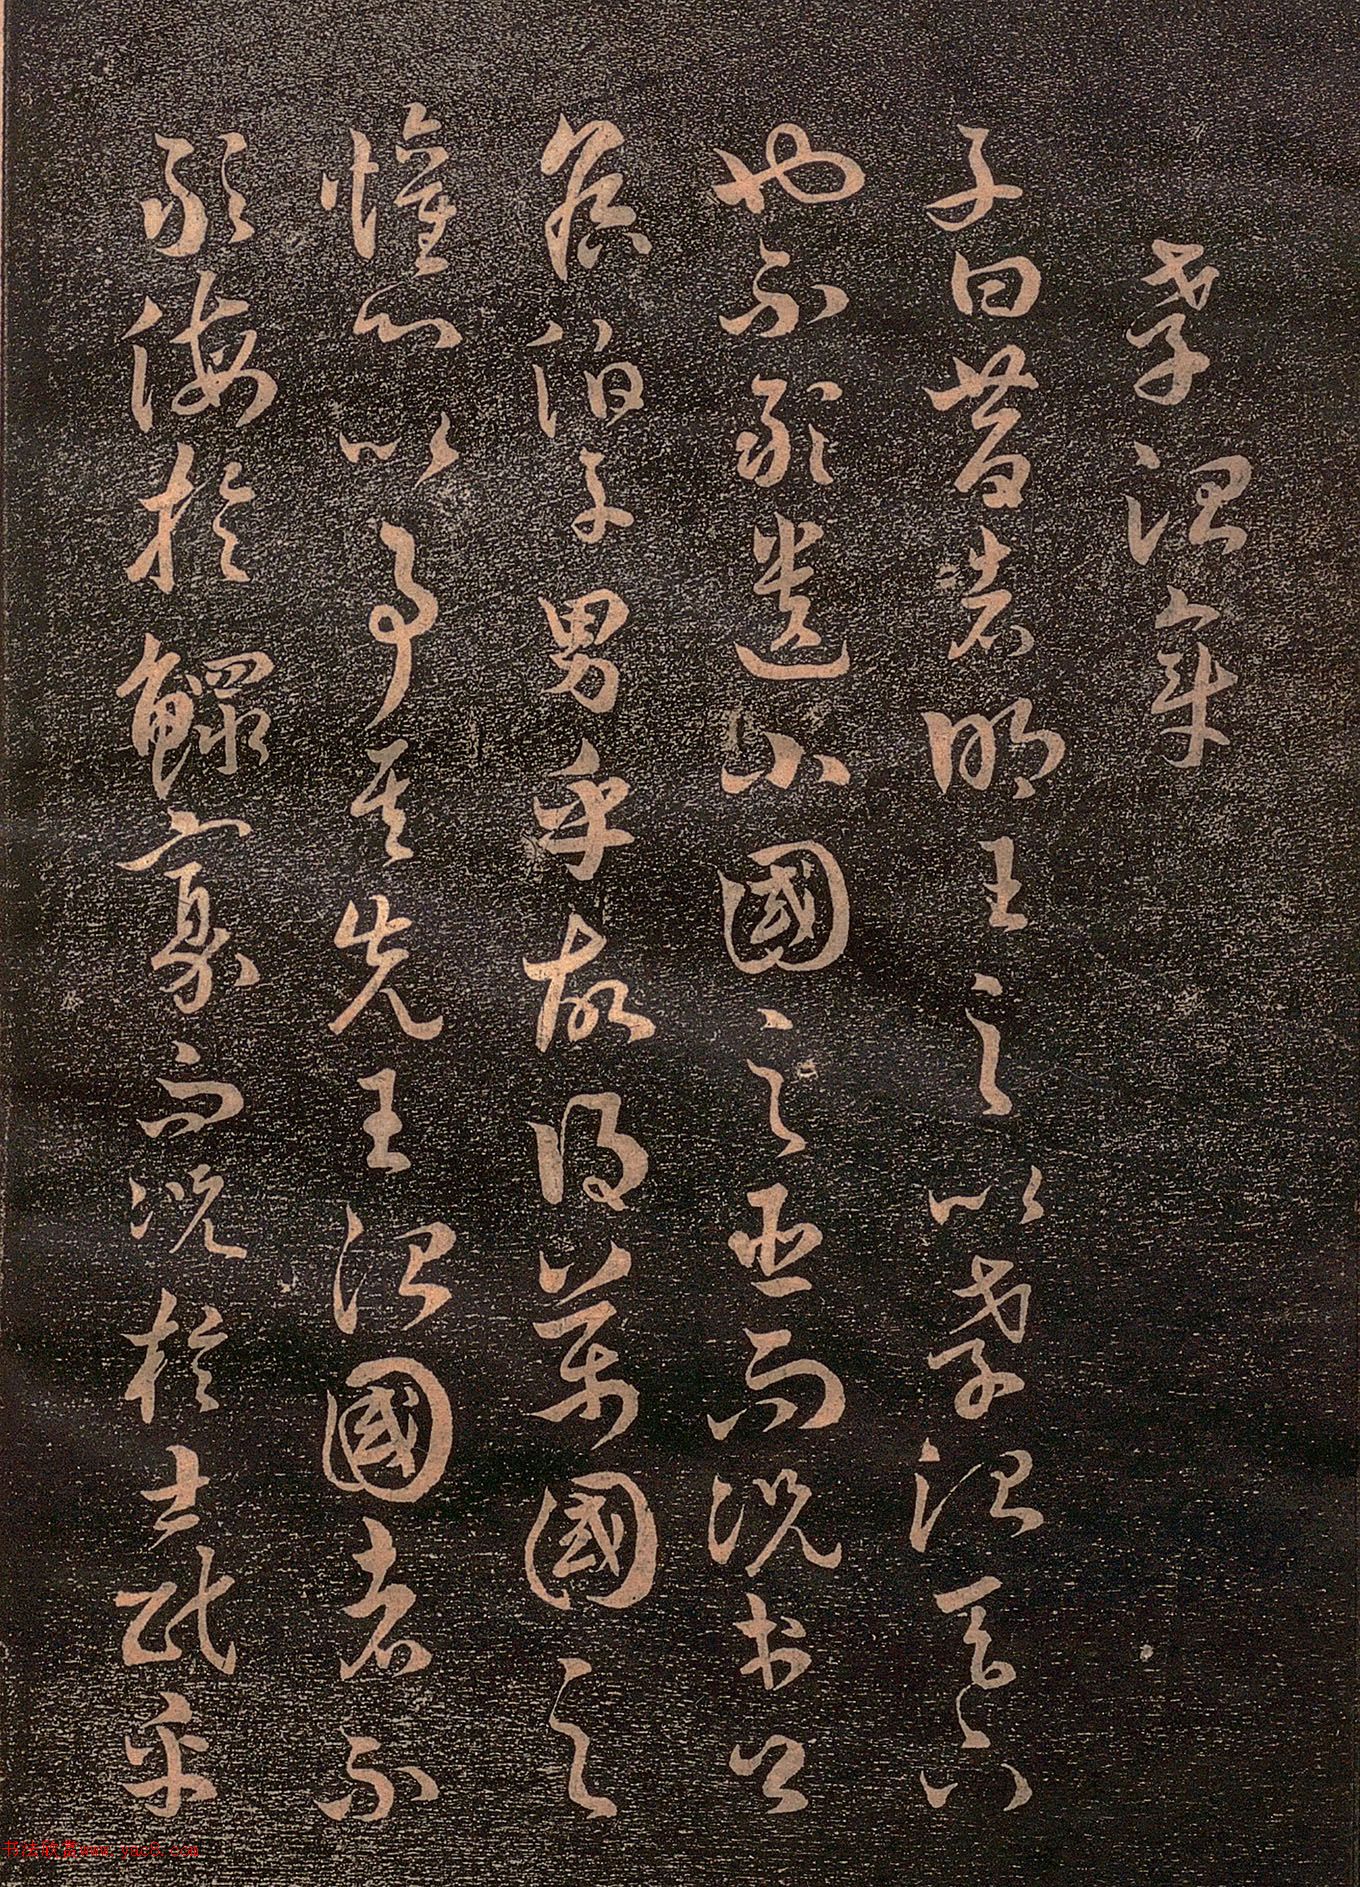 孝治章
子曰昔者明王之以孝治天下
也不敢遺小國之臣而況於公
侯伯子男乎故得萬國之
懽心以事其先王治國者不
敢侮於鰥寡而況於士民乎
书法欣赏www.yac8.com